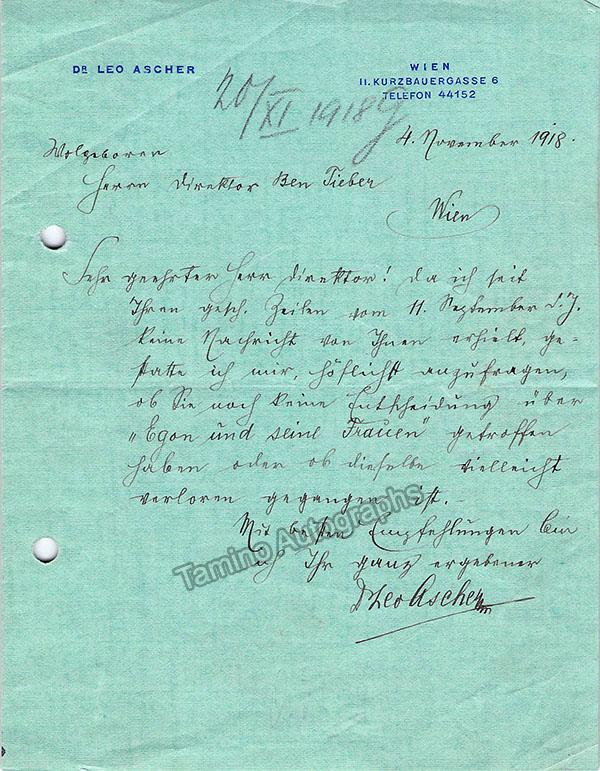 DR LEO ASCHER
WIEN
II. KURZBAUERGASSE 6
TELEFON 44152
20/XI 1918
4. November 1918.
Wolgeboren
Herrn Direktor Ben Tieber
Wien
Sehr geehrter Herr Direktor! Da ich seit
Ihren gesch. Zeilen vom 11. September d. J.
keine Nachricht von Ihnen erhielt, ge-
statte ich mir, höflichst anzufragen,
ob Sie noch keine Entscheidung über
„Egon und seine Frauen" getroffen
haben oder ob dieselbe vielleicht
verloren gegangen ist. –
Mit besten Empfehlungen bin
ich Ihr ganz ergebener
Dr Leo Ascher
Tamino Autographs